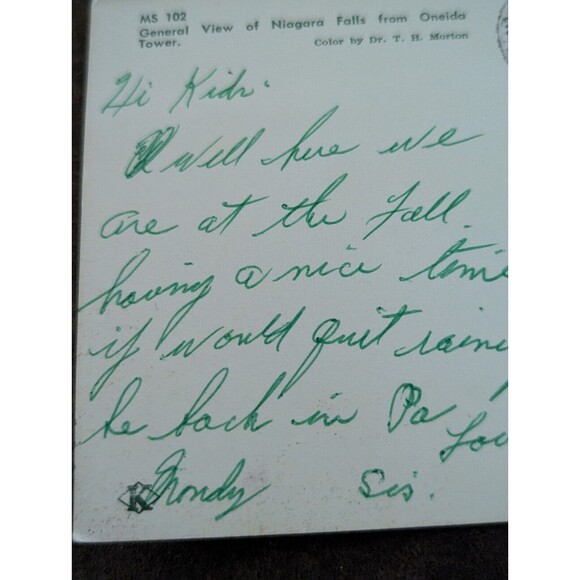 MS 102
General View of Niagara Falls from Oneida
Tower. Color by Dr. T. H. Morton
Hi Kids.
Well here we
are at the Fall.
having a nice time
if would quit rainy
be back in Pa
Lov
Mondy Sis.
K